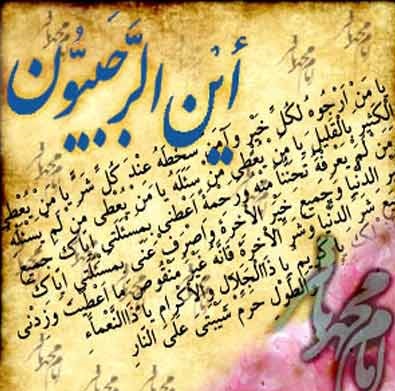 أين الرَّجَبيّون
يا مَنْ اَرْجُوهُ لِكُلِّ خَيْرٍ وَآمَنُ سَخَطَهُ عِنْدَ كُلِّ شَرٍّ يا مَنْ يُعْطِي
الْكَثيرَ بِالْقَليلِ يا مَنْ يُعْطي مَنْ سَئَلَهُ يا مَنْ يُعْطي مَنْ لَمْ يَسْئَلْهُ
وَمَنْ لَمْ يَعْرِفْهُ تَحَنُّناً مِنْهُ وَرَحْمَةً اَعْطِني بِمَسْئَلَتي اِيّاكَ جَميعَ
خَيْرِ الدُّنْيا وَجَميعَ خَيْرِ الْاخِرَةِ وَاصْرِفْ عَنّي بِمَسْئَلَتي اِيّاكَ
جَميعَ شَرِّ الدُّنْيا وَشَرِّ الْاخِرَةِ فَاِنَّهُ غَيْرُ مَنْقُوصٍ ما اَعْطَيْتَ وَزِدْني
يا كَريمُ يا ذَاالْجَلالِ وَالْاِكْرامِ يا ذَاالنَّعْماءِ
الطَّوْلِ حَرِّمْ شَيْبَتي عَلَى النّارِ
امام محمد باقر